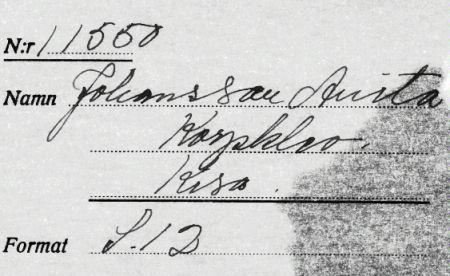 N:r 11550
Namn Johansson Anita
Korpklev.
Kisa.
Format S.12